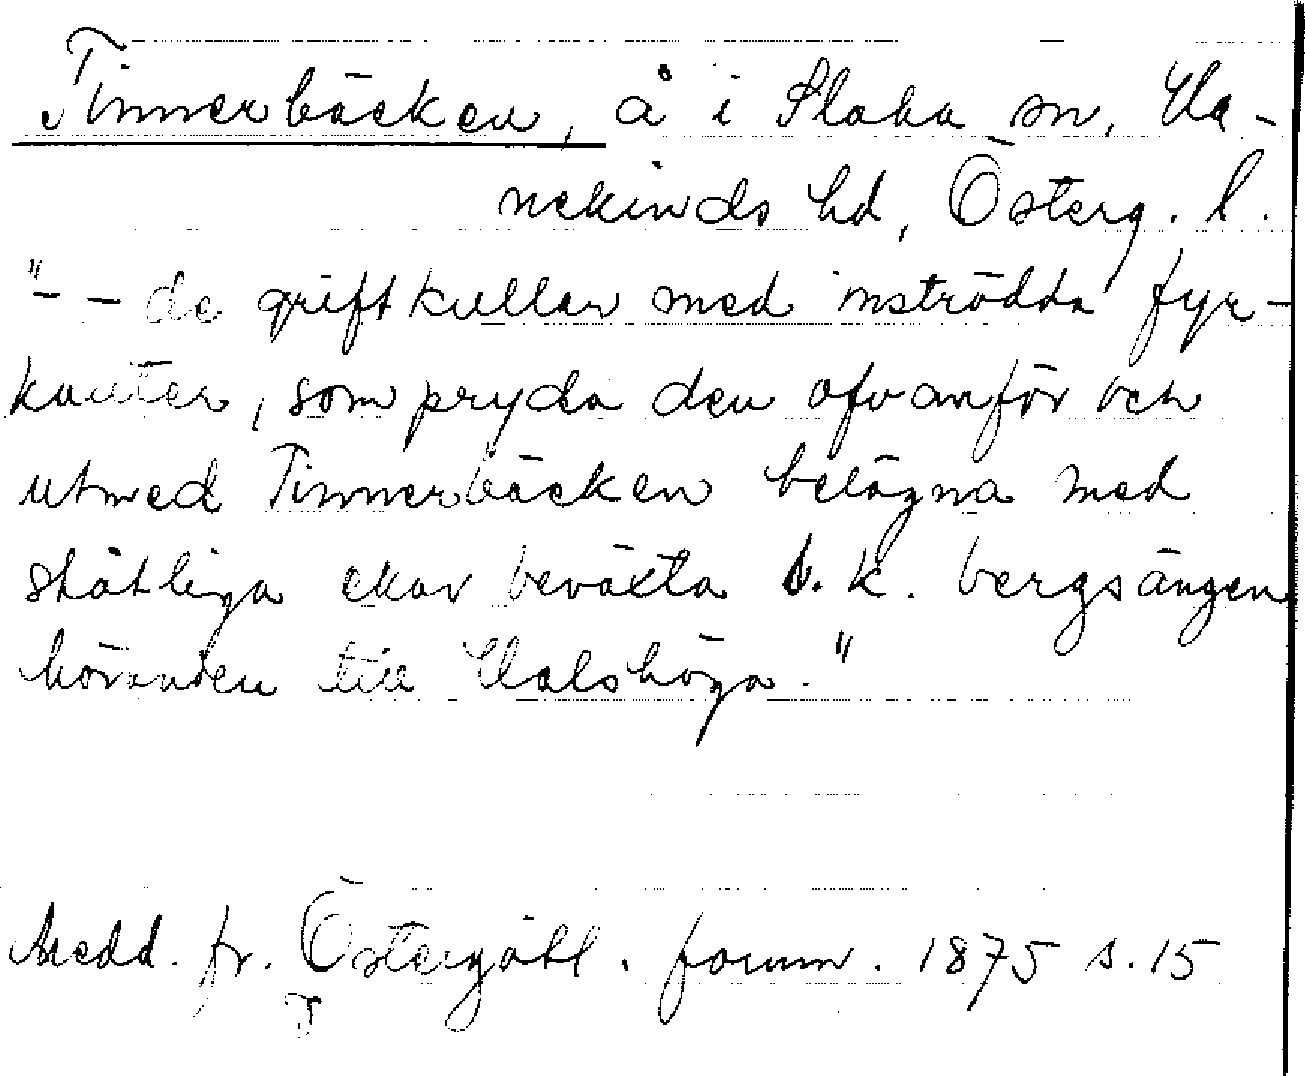 Tinnerbäcken, å i Slaka sn, Ha-
nekinds hd, Österg. l.
"– – de griftkullar med inströdda fyr-
kanter, som pryda den ofvanför och
utmed Tinnerbäcken belägna med
ståtliga ekar beväxta s.k. bergsängen
höranden till Halshöga."
Medd. fr. Östergötl. fornm. 1875 s. 15